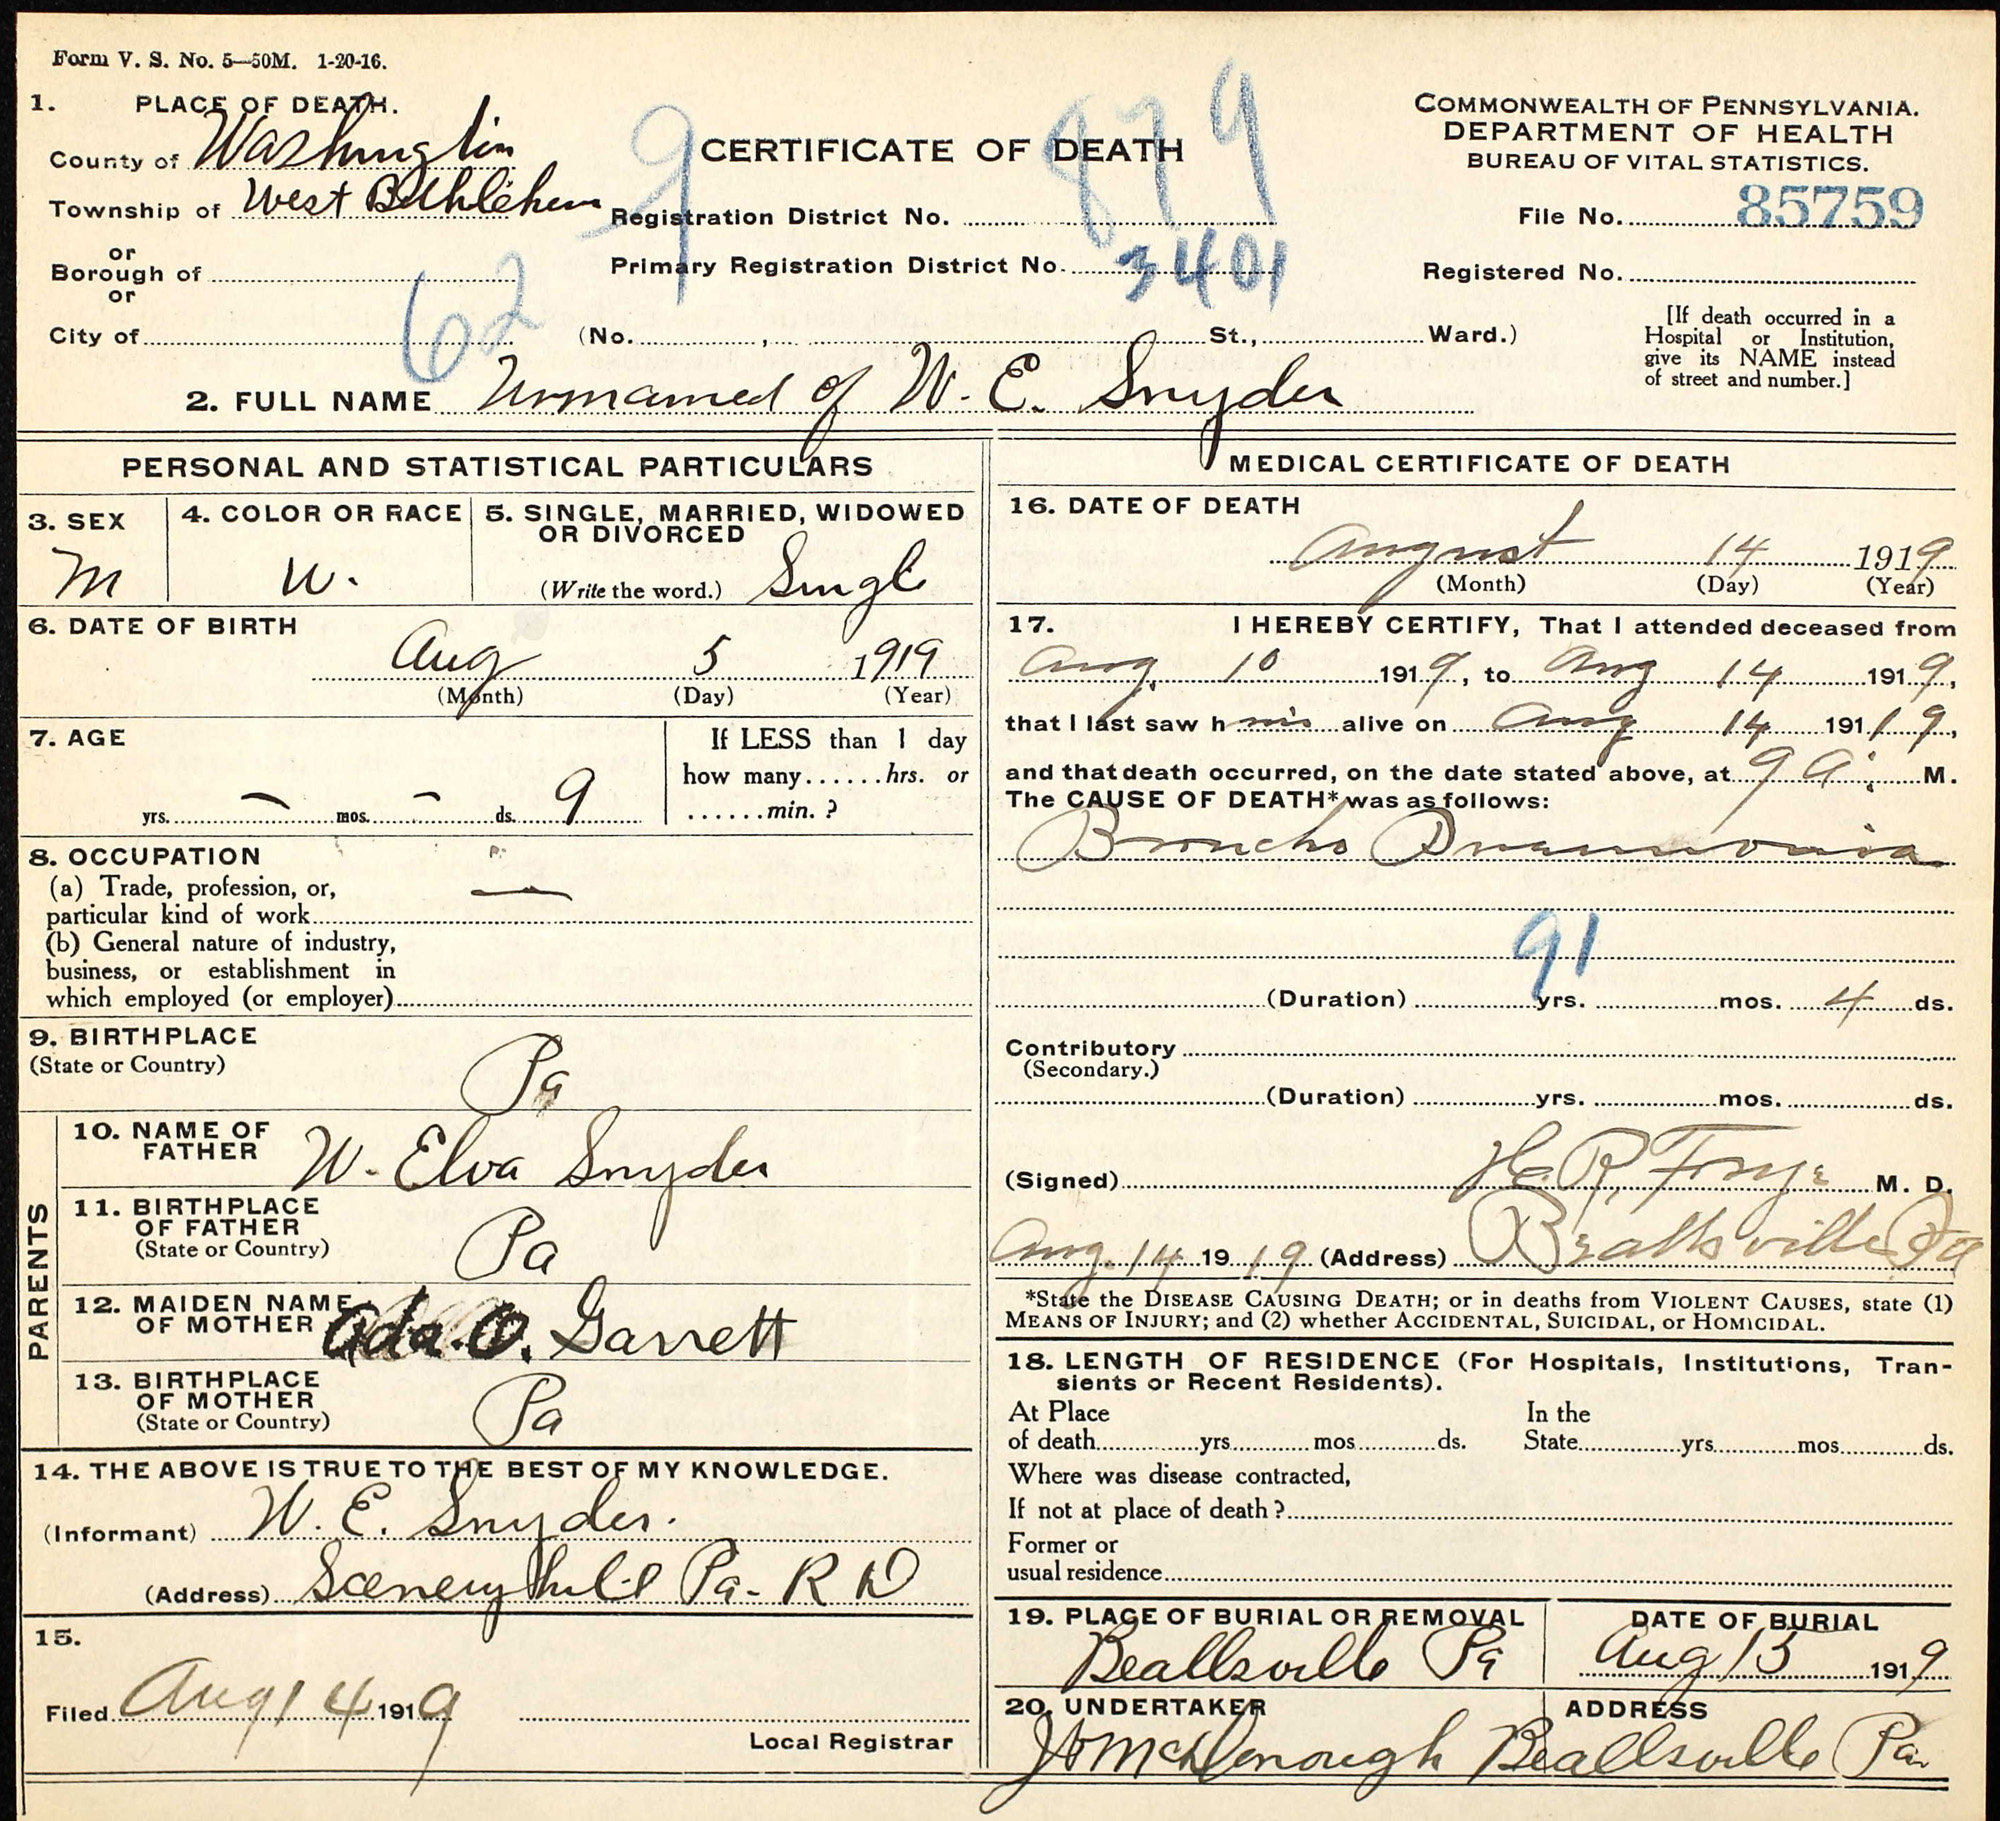 Form V. S. No. 5—50M. 1-20-16.
1. PLACE OF DEATH.
County of Washington
Township of West Bethlehem
or
Borough of
or
City of
CERTIFICATE OF DEATH
9 879
Registration District No.
Primary Registration District No. 3401
62
(No. , St., Ward.)
COMMONWEALTH OF PENNSYLVANIA.
DEPARTMENT OF HEALTH
BUREAU OF VITAL STATISTICS.
File No. 85759
Registered No.
[If death occurred in a
Hospital or Institution,
give its NAME instead
of street and number.]
2. FULL NAME Unnamed of W. E. Snyder
PERSONAL AND STATISTICAL PARTICULARS
3. SEX
M
4. COLOR OR RACE
W.
5. SINGLE, MARRIED, WIDOWED
OR DIVORCED
(Write the word.) Single
6. DATE OF BIRTH
Aug 5 1919
(Month) (Day) (Year)
7. AGE
yrs. — mos. — ds. 9
If LESS than 1 day
how many......hrs. or
......min. ?
8. OCCUPATION
(a) Trade, profession, or,
particular kind of work —
(b) General nature of industry,
business, or establishment in
which employed (or employer)
9. BIRTHPLACE
(State or Country)
Pa
PARENTS
10. NAME OF
FATHER
W. Elva Snyder
11. BIRTHPLACE
OF FATHER
(State or Country)
Pa
12. MAIDEN NAME
OF MOTHER
Ada. O. Garrett
13. BIRTHPLACE
OF MOTHER
(State or Country)
Pa
14. THE ABOVE IS TRUE TO THE BEST OF MY KNOWLEDGE.
(Informant) W. E. Snyder.
(Address) Scenery Hill Pa- R D
15.
Filed Aug 14 1919
Local Registrar
MEDICAL CERTIFICATE OF DEATH
16. DATE OF DEATH
August 14 1919
(Month) (Day) (Year)
17. I HEREBY CERTIFY, That I attended deceased from
Aug. 10 1919, to Aug 14 1919,
that I last saw h im alive on Aug 14 191 19,
and that death occurred, on the date stated above, at 9 A. M.
The CAUSE OF DEATH* was as follows:
Broncho Pneumonia
91
(Duration) yrs. mos. 4 ds.
Contributory
(Secondary.)
(Duration) yrs. mos. ds.
(Signed) H. R. Frye M. D.
Aug. 14 1919 (Address) Beallsville Pa
*State the DISEASE CAUSING DEATH; or in deaths from VIOLENT CAUSES, state (1)
MEANS OF INJURY; and (2) whether ACCIDENTAL, SUICIDAL, or HOMICIDAL.
18. LENGTH OF RESIDENCE (For Hospitals, Institutions, Tran-
sients or Recent Residents).
At Place In the
of death yrs mos ds. State yrs mos ds.
Where was disease contracted,
If not at place of death?
Former or
usual residence
19. PLACE OF BURIAL OR REMOVAL
Beallsville Pa
DATE OF BURIAL
Aug 15 1919
20. UNDERTAKER ADDRESS
McDonough Beallsville Pa.